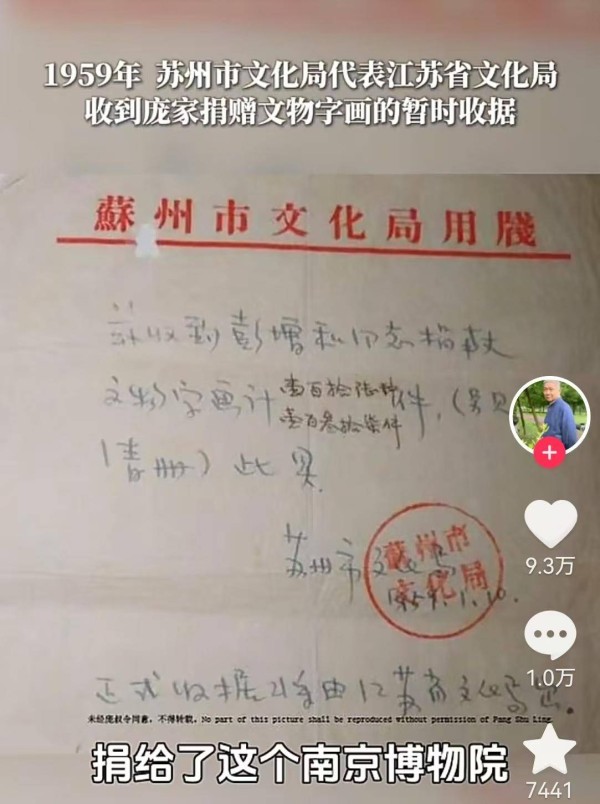 1959年 苏州市文化局代表江苏省文化局
收到庞家捐赠文物字画的暂时收据
蘇州市文化局用牋
兹收到彭增和同志捐献
文物字画计
壹百叁拾柒件
件,(另见
清册)此具
苏州市文化局
蘇州市
文化局
1959.1.10.
正式收据将由江苏省文化局出。
未经庞叔令同意，不得转载。No part of this picture shall be reproduced without permission of Pang Shu Ling.
捐给了这个南京博物院
9.3万
1.0万
7441